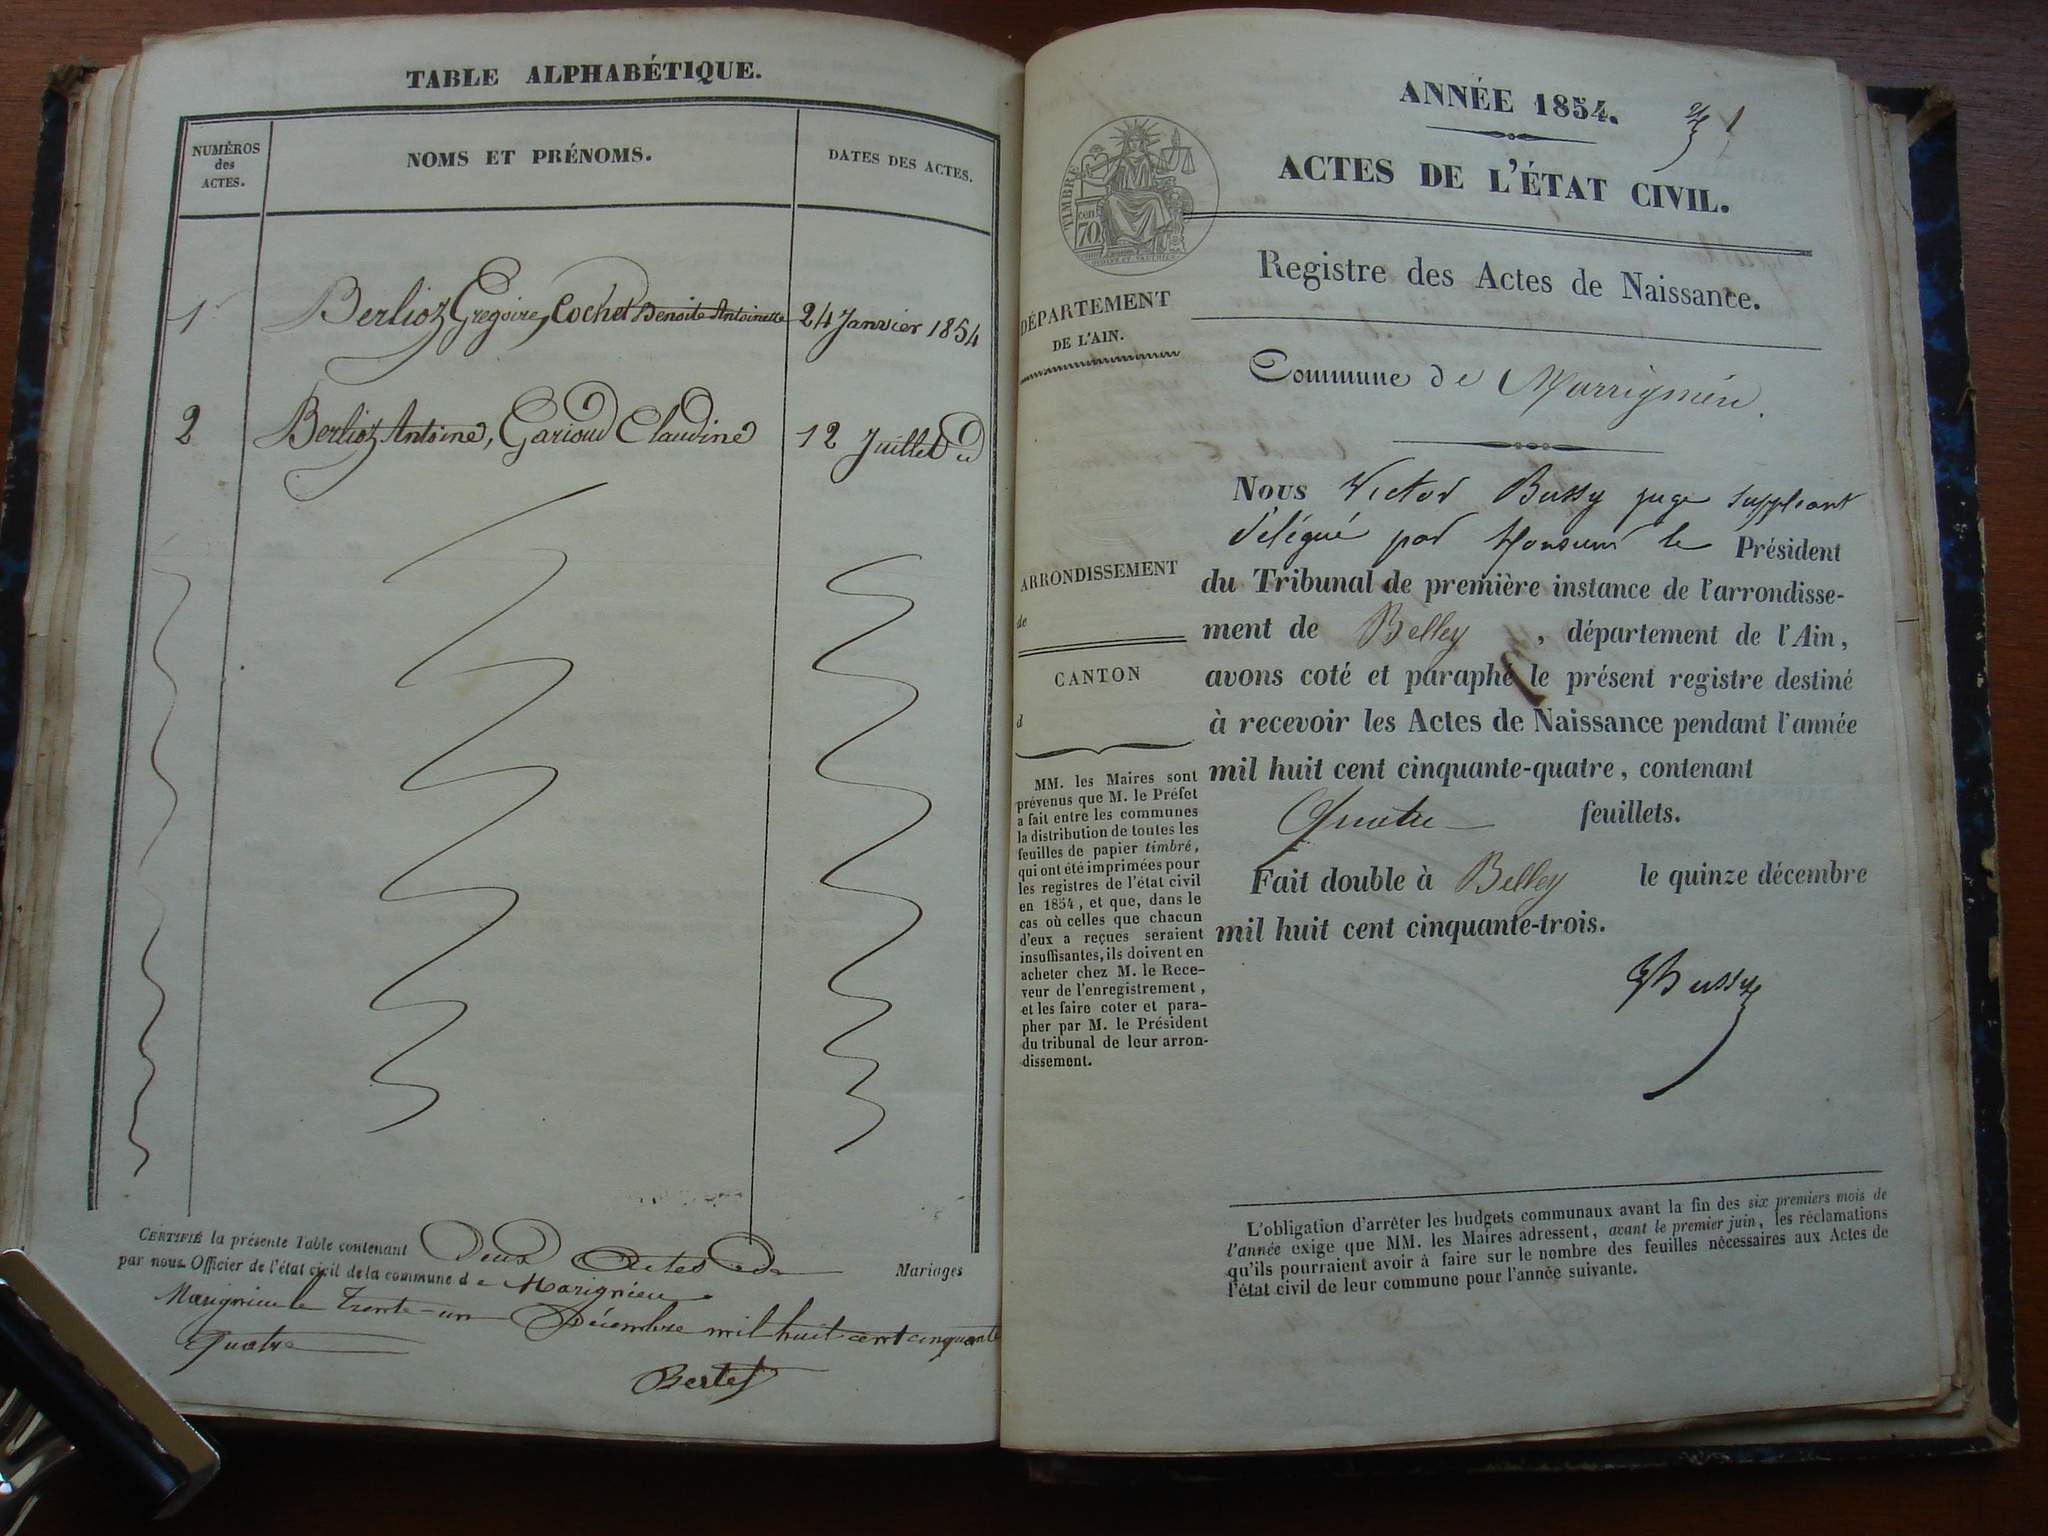 TABLE ALPHABÉTIQUE.
NUMÉROS
des
ACTES.
NOMS ET PRÉNOMS.
DATES DES ACTES.
1 Berlioz Gregoire, Cochet Benoite Antoinette 24 Janvier 1854
2 Berlioz Antoine, Garioud Claudine 12 Juillet d
CERTIFIÉ la présente Table contenant Deux Actes de Mariages
par nous Officier de l'état civil de la commune de Marignieu
Marignieu le Trente-un Décembre mil huit cent cinquante
Quatre
Bertet
ANNÉE 1854.
1
ACTES DE L'ÉTAT CIVIL.
TIMBRE
cen
70
Registre des Actes de Naissance.
DÉPARTEMENT
DE L'AIN.
Commune de Marrignieu.
ARRONDISSEMENT
de
CANTON
d
MM. les Maires sont
prévenus que M. le Préfet
a fait entre les communes
la distribution de toutes les
feuilles de papier timbré,
qui ont été imprimées pour
les registres de l'état civil
en 1854, et que, dans le
cas où celles que chacun
d'eux a reçues seraient
insuffisantes, ils doivent en
acheter chez M. le Rece-
veur de l'enregistrement,
et les faire coter et para-
pher par M. le Président
du tribunal de leur arron-
dissement.
Nous Victor Bussy juge suppleant
délégué par Monsieur le Président
du Tribunal de première instance de l'arrondisse-
ment de Belley, département de l'Ain,
avons coté et paraphé le présent registre destiné
à recevoir les Actes de Naissance pendant l'année
mil huit cent cinquante-quatre, contenant
Quatre feuillets.
Fait double à Belley le quinze décembre
mil huit cent cinquante-trois.
Bussy
L'obligation d'arrêter les budgets communaux avant la fin des six premiers mois de
l'année exige que MM. les Maires adressent, avant le premier juin, les réclamations
qu'ils pourraient avoir à faire sur le nombre des feuilles nécessaires aux Actes de
l'état civil de leur commune pour l'année suivante.